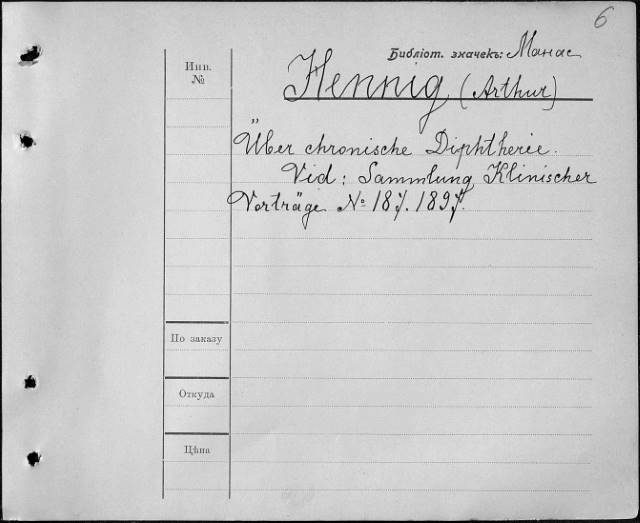 6
Библіот. значекъ: Манас
Инв.
№
Hennig (Arthur)
Über chronische Diphtherie.
Vid: Sammlung Klinischer
Vorträge № 187. 1897.
По заказу
Откуда
Цѣна